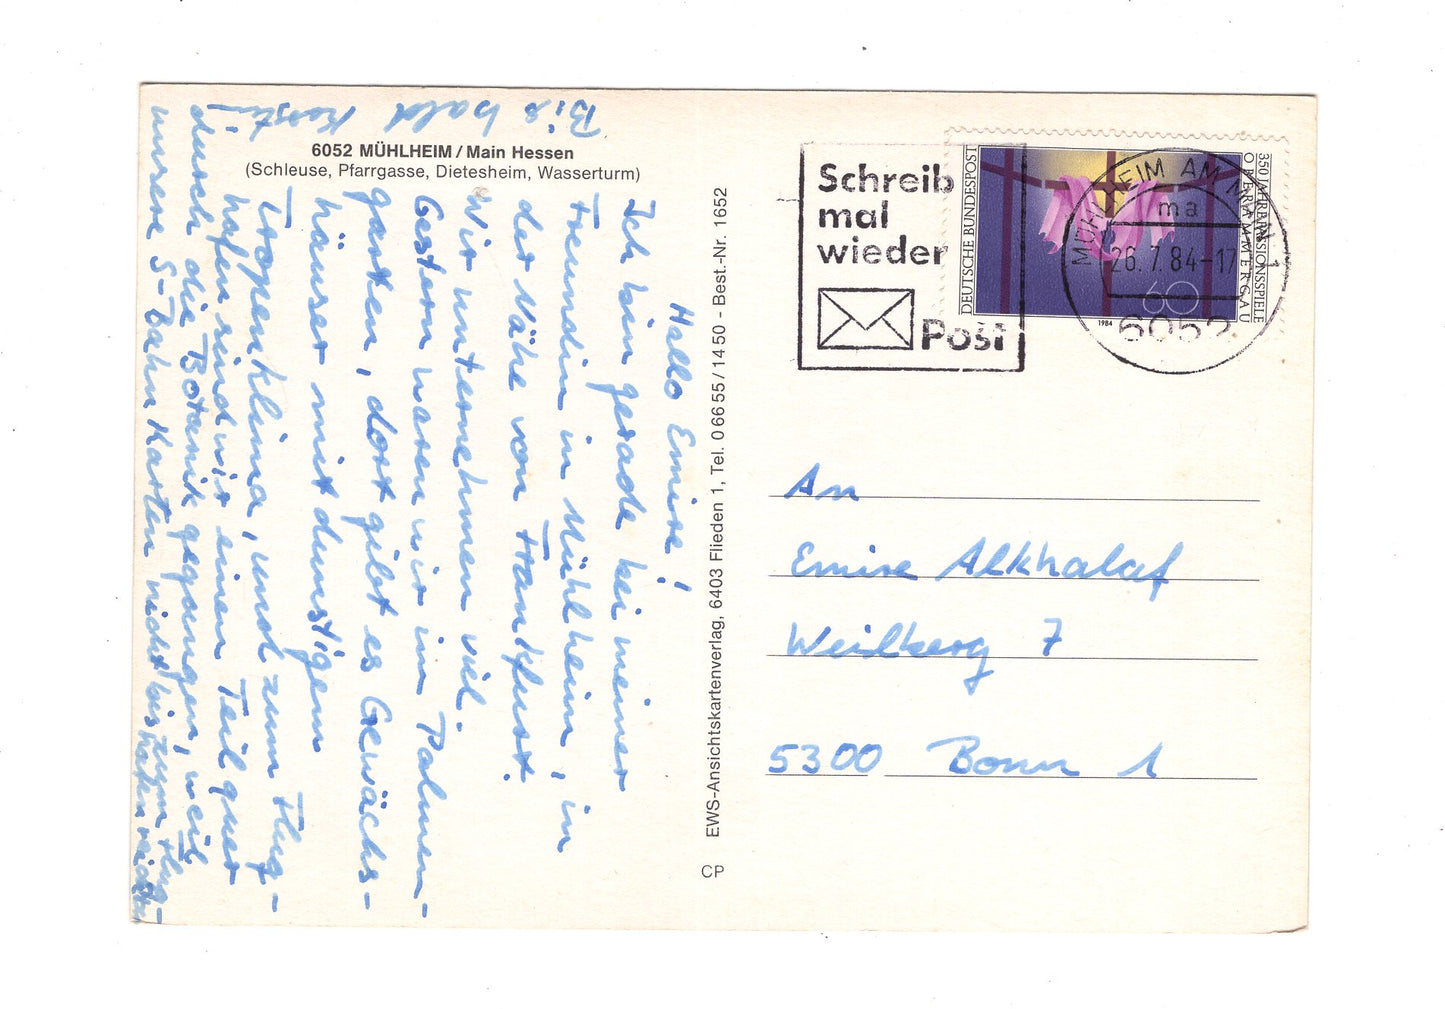 6052 MÜHLHEIM / Main Hessen
(Schleuse, Pfarrgasse, Dietesheim, Wasserturm)
Hallo Emire!
Ich bin gerade bei meiner
Freundin in Mühlheim, in
der Nähe von Frankfurt.
Wir unternehmen viel.
Gestern waren wir im Palmen-
garten, dort gibt es Gewächs-
häuser mit dunstigem
Tropenklima, und zum Flug-
hafen sind wir einen Teil quer
durch die Botanik gegangen, weil
unsere S-Bahn Karten nicht bis zum Flug-
hafen reichten
Bis bald Kerstin
EWS-Ansichtskartenverlag, 6403 Flieden 1, Tel. 0 66 55 / 14 50 - Best.-Nr. 1652
CP
Schreib
mal
wieder
Post
DEUTSCHE BUNDESPOST
350 JAHRE PASSIONSSPIELE
OBERAMMERGAU
60
1984
MÜHLHEIM AM MAIN 1
ma
26.7.84-17
6052
An
Emire Alkhalaf
Weilberg 7
5300 Bonn 1